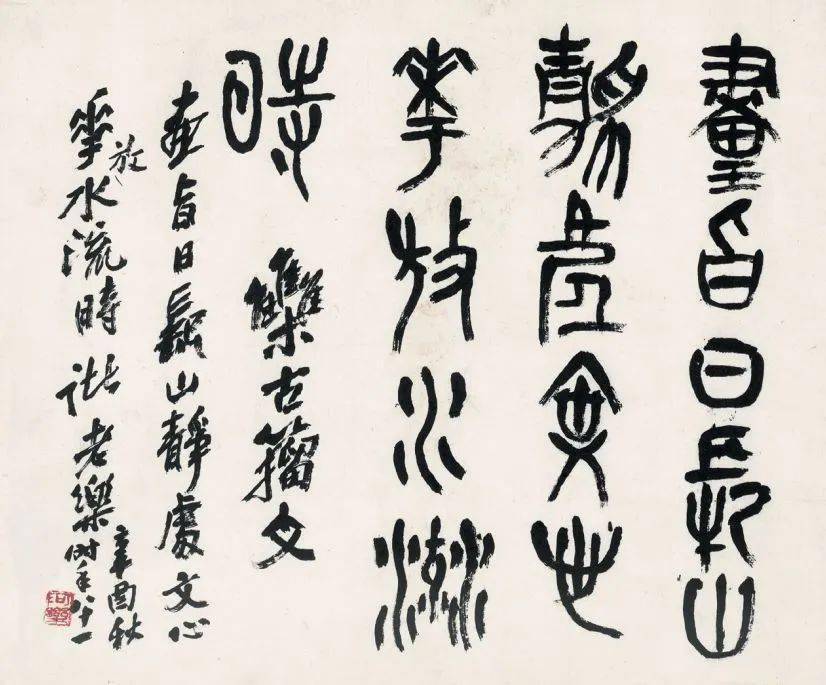 畫旨日長山
靜處文心
華放水流
時 雧古籀文
畫旨日長山靜處文心
華放水流時 諸老樂
辛酉秋
時年八十一